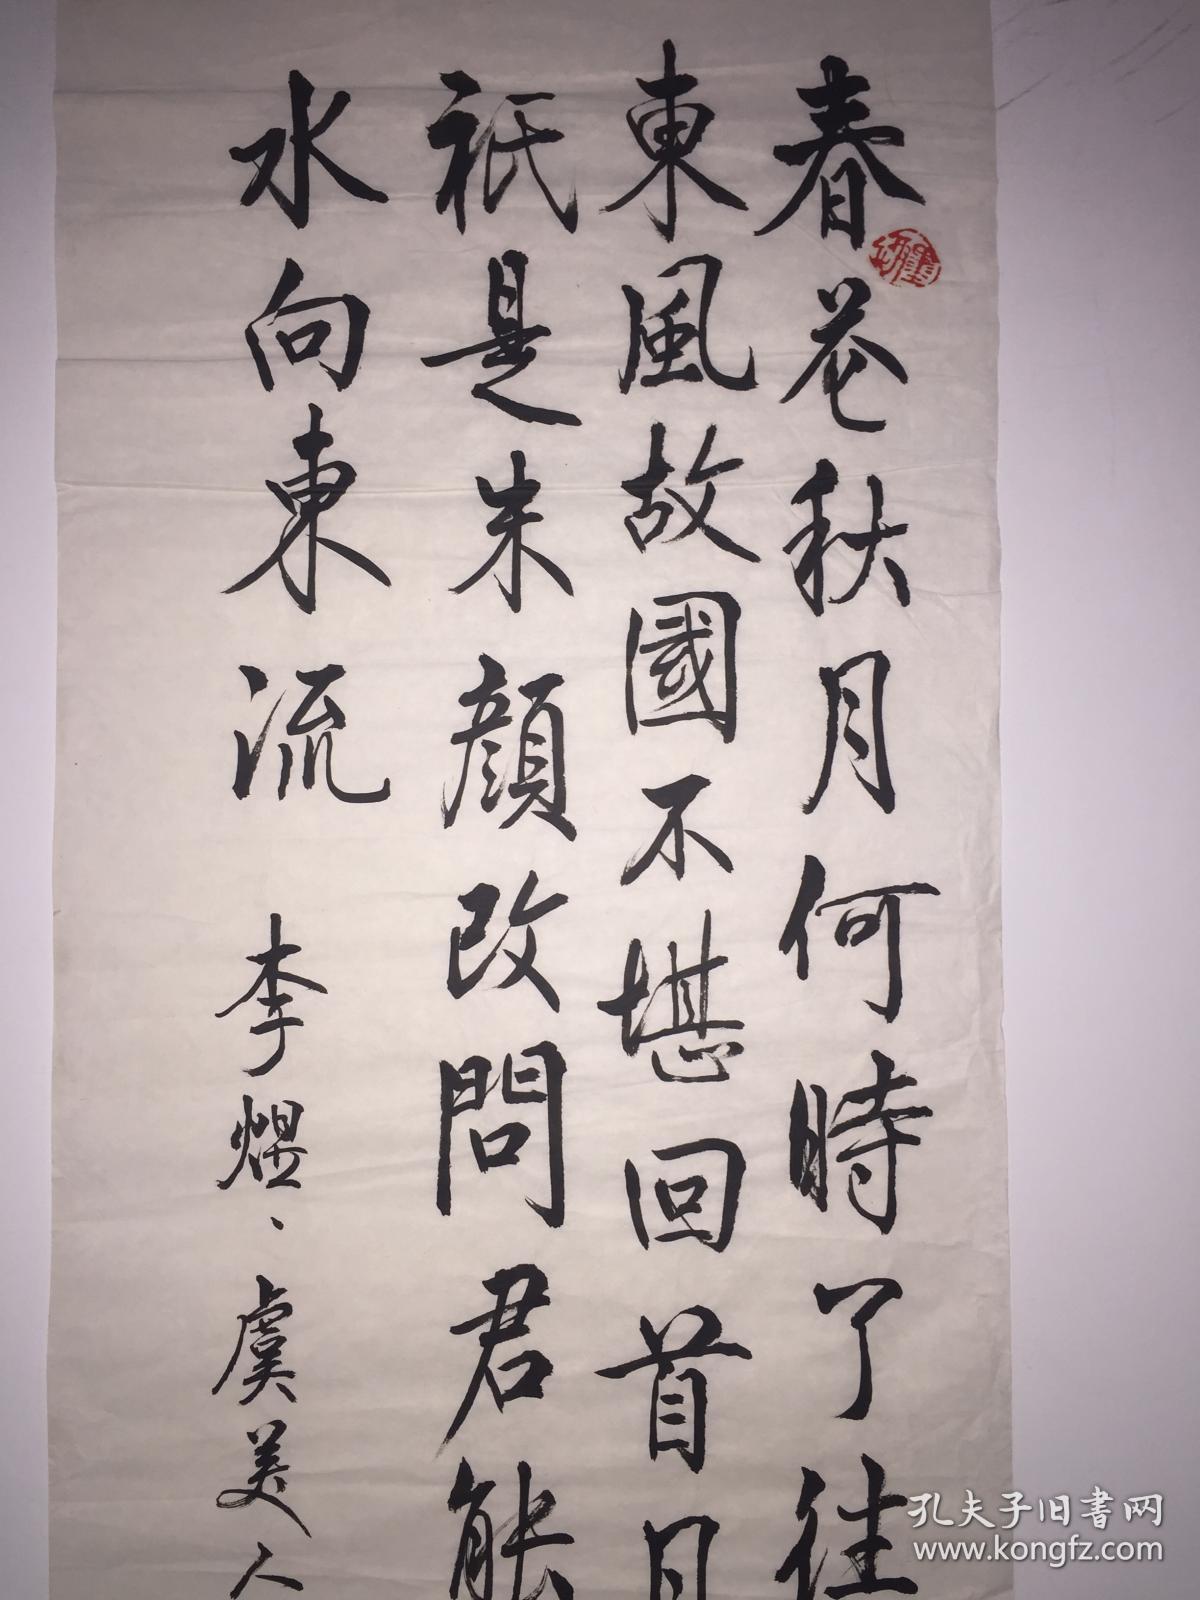 春花秋月何時了往
東風故國不堪回首月
祇是朱顏改問君能
水向東流 李煜、虞美人
孔夫子旧書网
www.kongfz.com